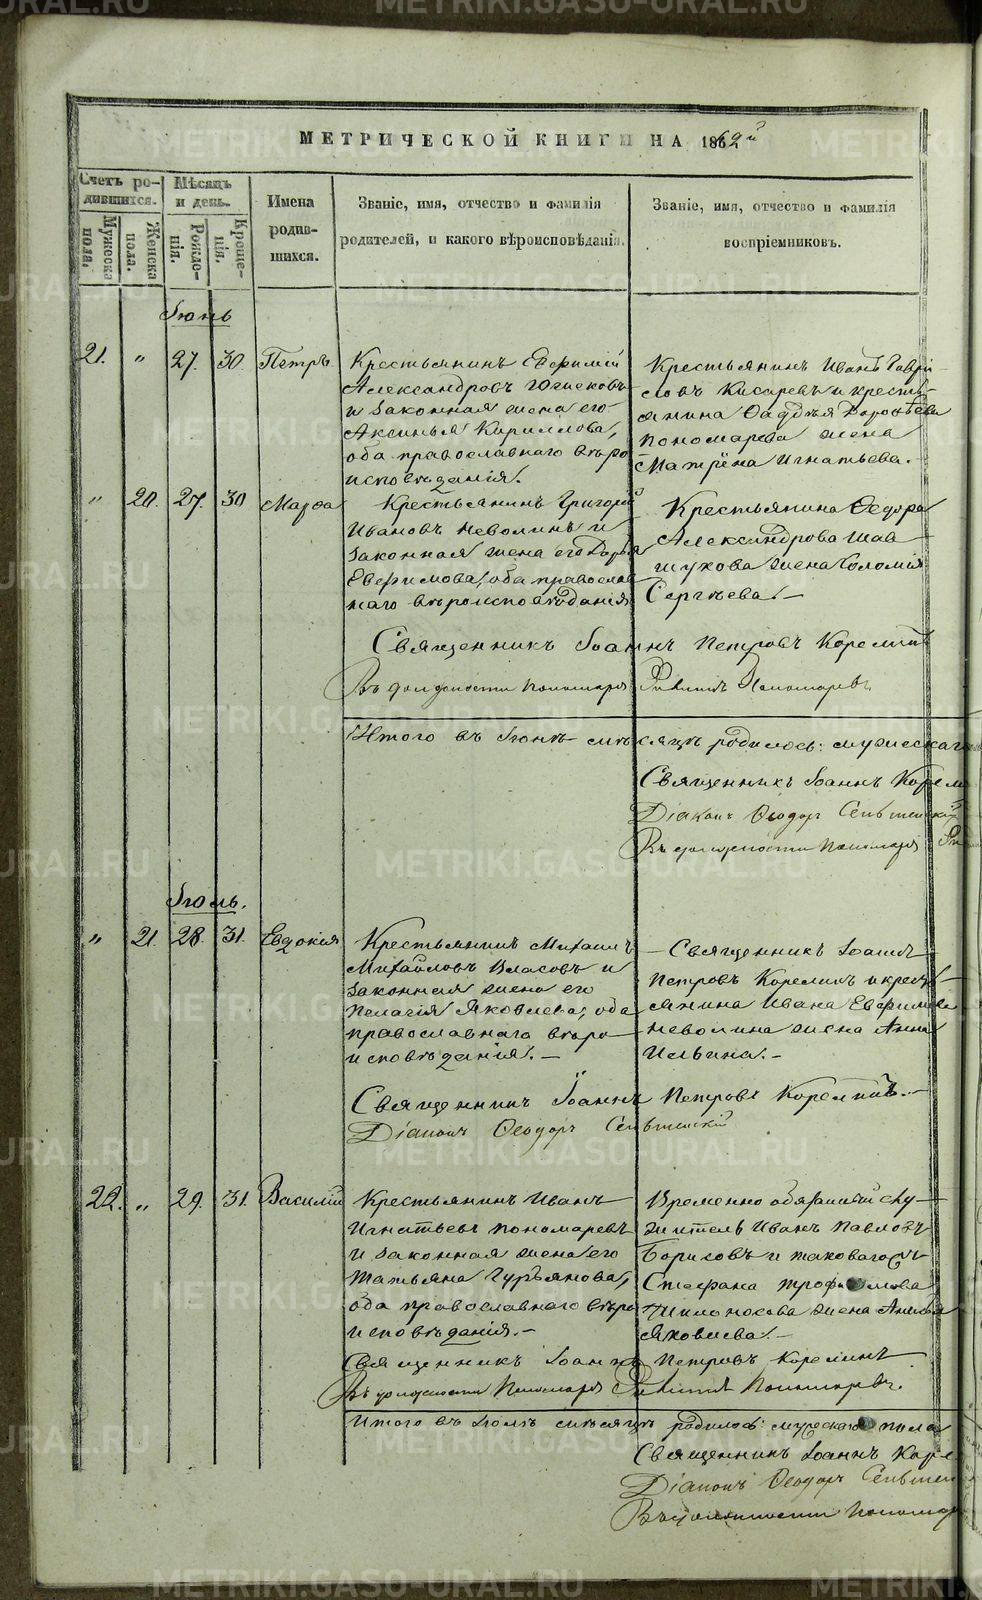 МЕТРИЧЕСКОЙ КНИГИ НА 1862й
Счетъ ро-
дившихся.
Мѣсяцъ
и день.
Имена
родив-
шихся.
Званіе, имя, отчество и фамилія
родителей, и какого вѣроисповѣданія.
Званіе, имя, отчество и фамилія
воспріемниковъ.
Мужеска
пола.
Женска
пола.
Рожде-
нія.
Креще-
нія.
Іюнь
21. " 27. 30 Петръ
Крестьянинъ Евфимій
Александровъ
и законная жена его
Аксинья Кириллова,
оба православнаго вѣро
исповѣданія.
Крестьянинъ Иванъ Гаври-
ловъ Кисаревъ и кресть
янина Фаддея
Пономарева жена
Матрёна Игнатьева.
" 20. 27. 30 Марѳа
Крестьянинъ Григорій
Ивановъ Неволинъ и
законная жена его Дарья
Евфимова, оба православ
наго вѣроисповѣданія
Крестьянина Ѳедора
Александрова Шав
шукова жена Соломія
Сергѣева.-
Священникъ Іоаннъ Петровъ Корелинъ
Въ должности Пономаря Пономаревъ
Итого въ Іюнѣ мѣсяцѣ родилось: мужескаго
Священникъ Іоаннъ Корел
Діаконъ Ѳеодоръ
Въ должности Пономаря
Іюль.
" 21. 28. 31. Евдокія
Крестьянинъ Михаилъ
Михайловъ Власовъ и
законная жена его
Пелагія Яковлева, оба
православнаго вѣро-
исповѣданія.-
- Священникъ Іоаннъ
Петровъ Корелинъ и кресть-
янина Ивана Евфимова
Неволина жена Анна
Ильина.-
Священникъ Іоаннъ Петровъ Корелинъ.-
Діаконъ Ѳеодоръ
22. " 29. 31. Василій
Крестьянинъ Иванъ
Игнатьевъ Пономаревъ
и законная жена его
Татьяна Гурьянова,
оба православнаго вѣро
исповѣданія.-
Временно обязанный слу-
житель Иванъ Павловъ
Борисовъ и таковагожъ
Стефана Трофимова
жена
Яковлева.-
Священникъ Іоаннъ Петровъ Корелинъ
Въ должности Пономаря Пономаревъ.
Итого въ Іюлѣ мѣсяцѣ родилось: мужескаго пола
Священникъ Іоаннъ Коре
Діаконъ Ѳеодоръ
Въ должности Пономар
METRIKI.GASO-URAL.RU